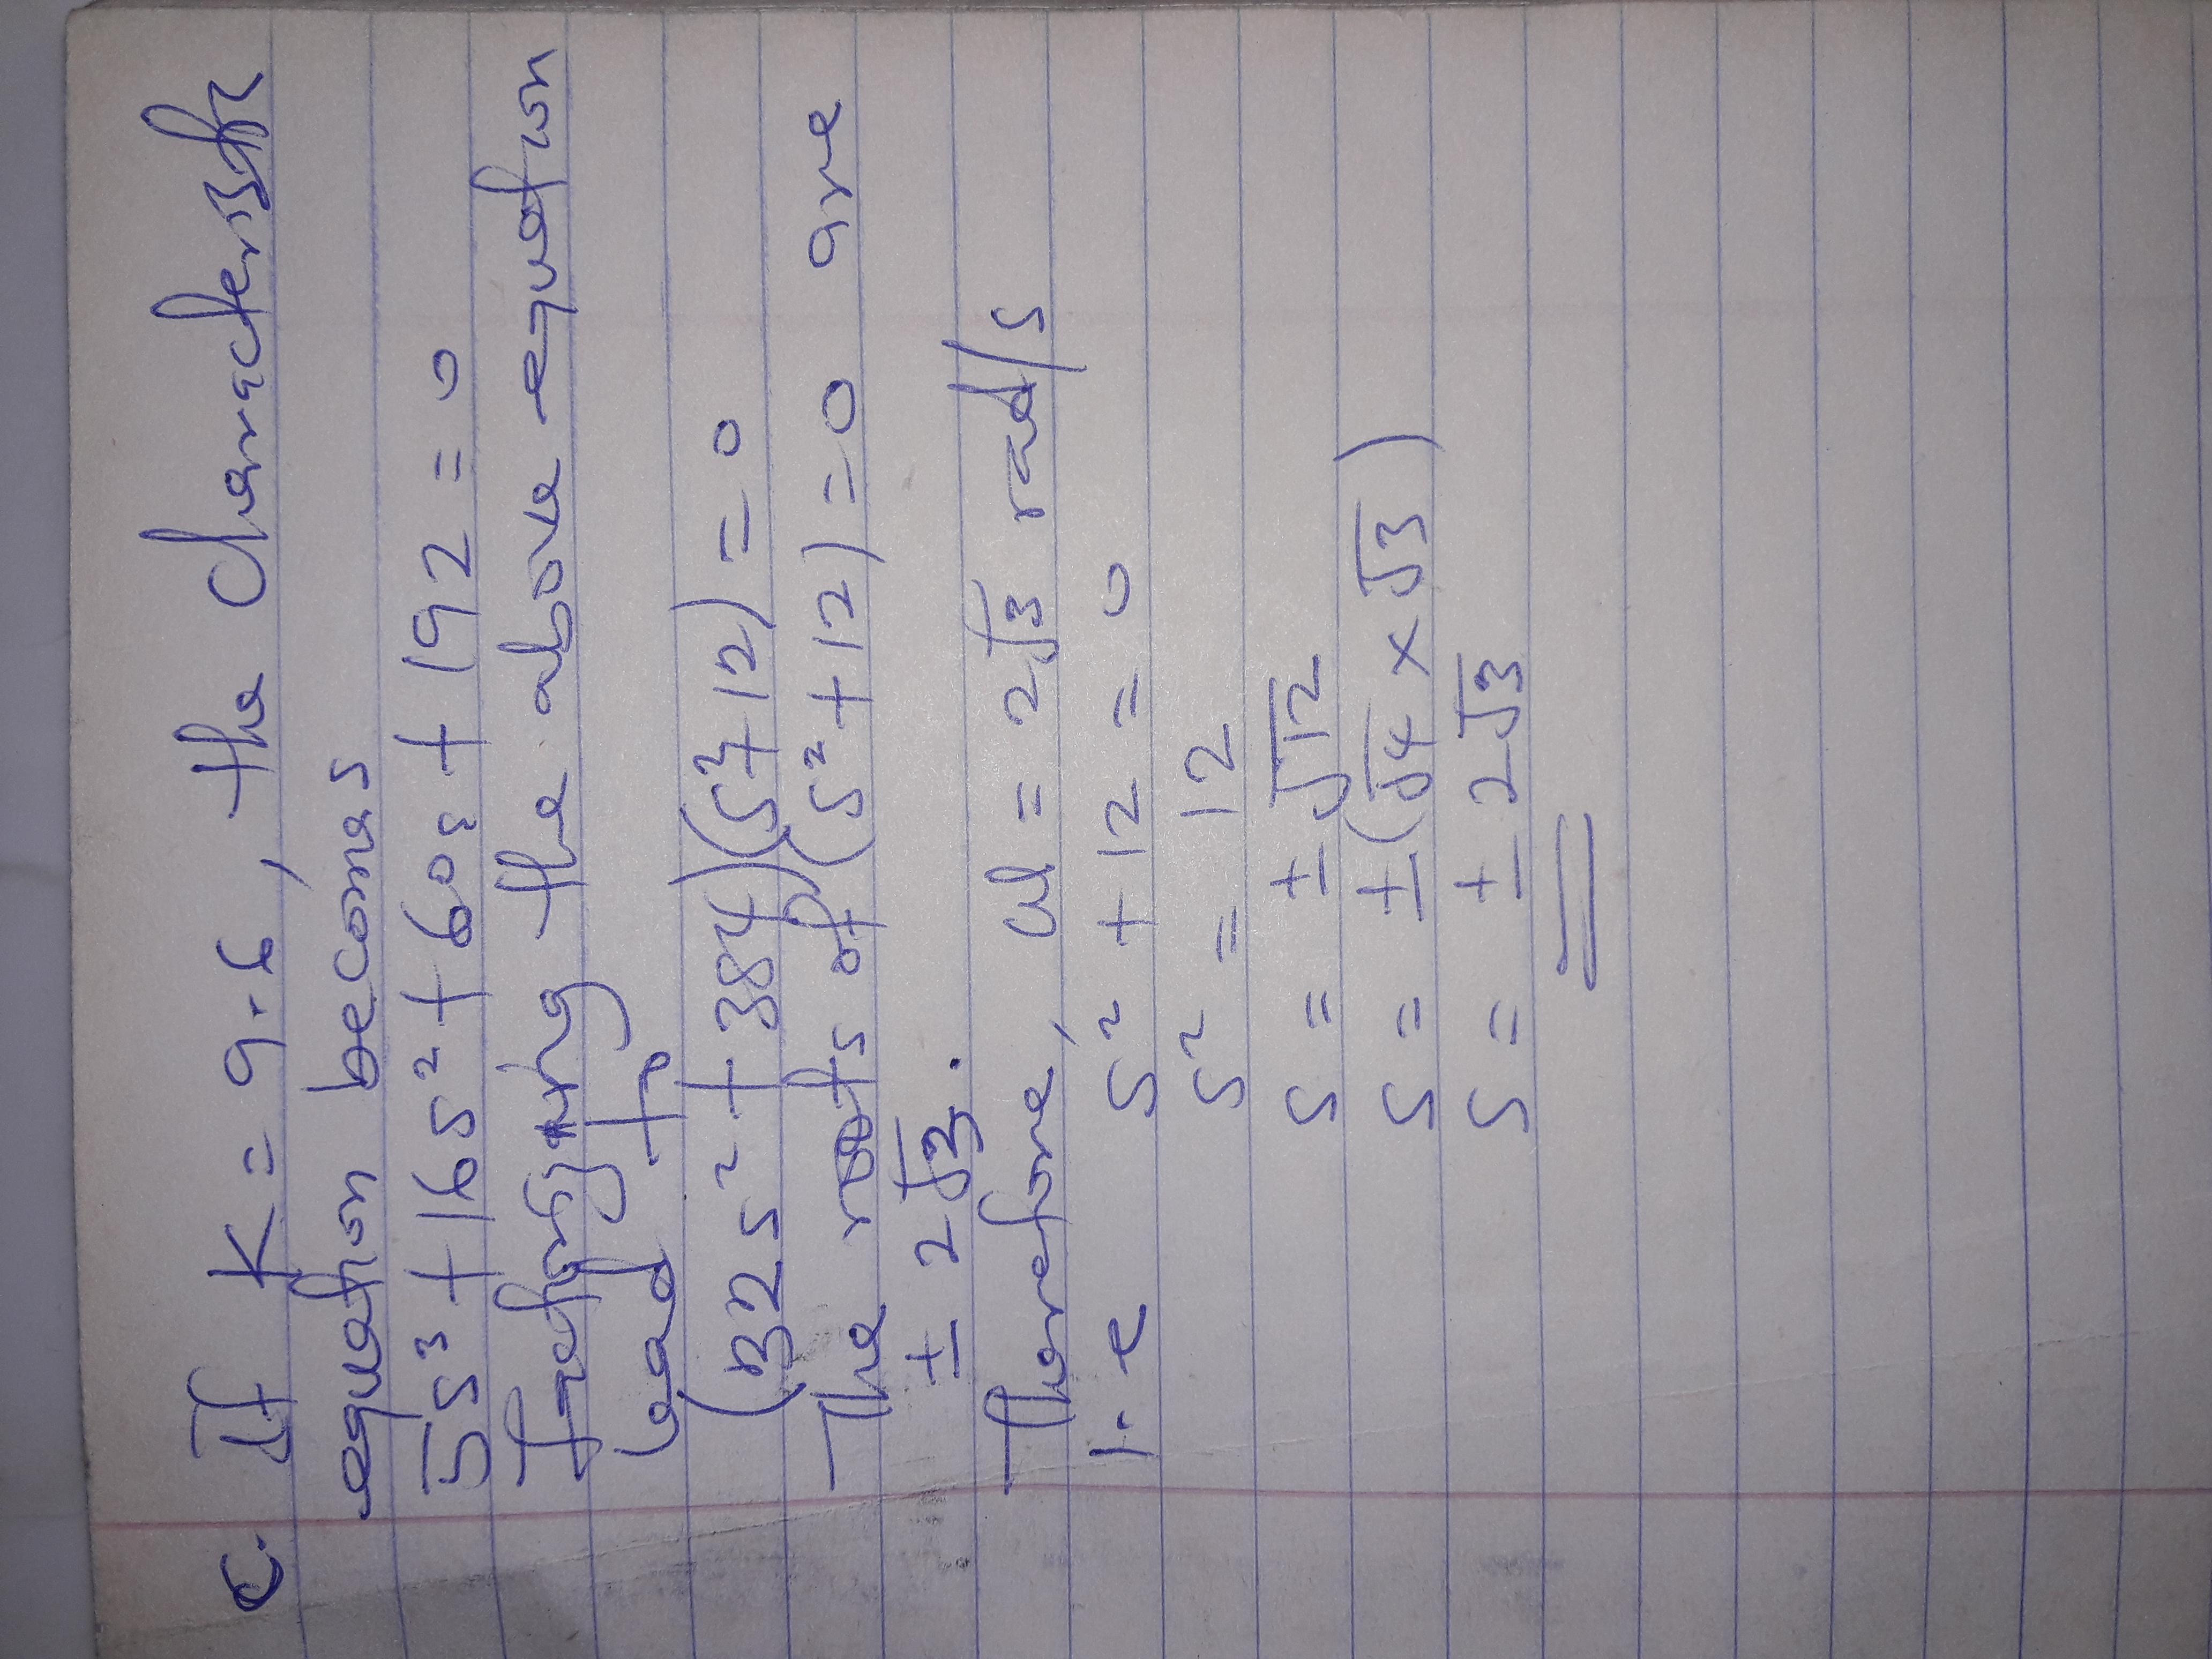 C. If K = 9.6, the characteristic
equation becomes
5s³ + 16s² + 60s + 192 = 0
the above equation
lead to
(32s² + 384)(s² + 12) = 0
The roots of (s² + 12) = 0 are
± 2√3.
Therefore, ω = 2√3 rad/s
i.e s² + 12 = 0
s² = 12
s = ± √12
s = ± (√4 × √3)
s = ± 2√3